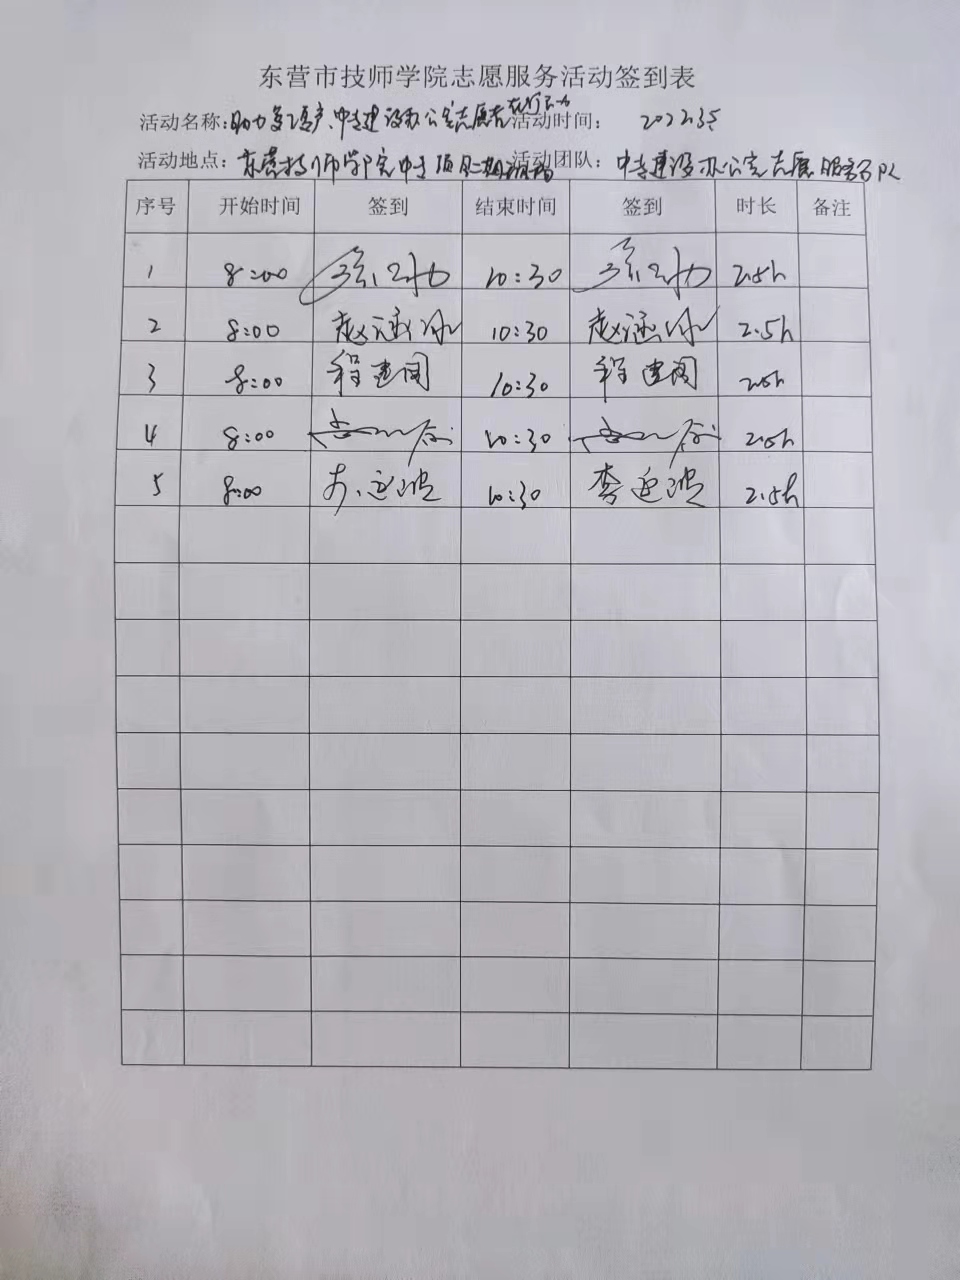 东营市技师学院志愿服务活动签到表
活动名称:助力复工复产、中专建设办公室志愿者在行动 活动时间: 2022.3.5
活动地点: 东营技师学院中专项目二期 活动团队: 中专建设办公室志愿服务队
序号 开始时间 签到 结束时间 签到 时长 备注
1 8:00 10:30 2.5h
2 8:00 赵涵冰 10:30 赵涵冰 2.5h
3 8:00 程建国 10:30 程建国 2.5h
4 8:00 10:30 2.5h
5 8:00 李延波 10:30 李延波 2.5h